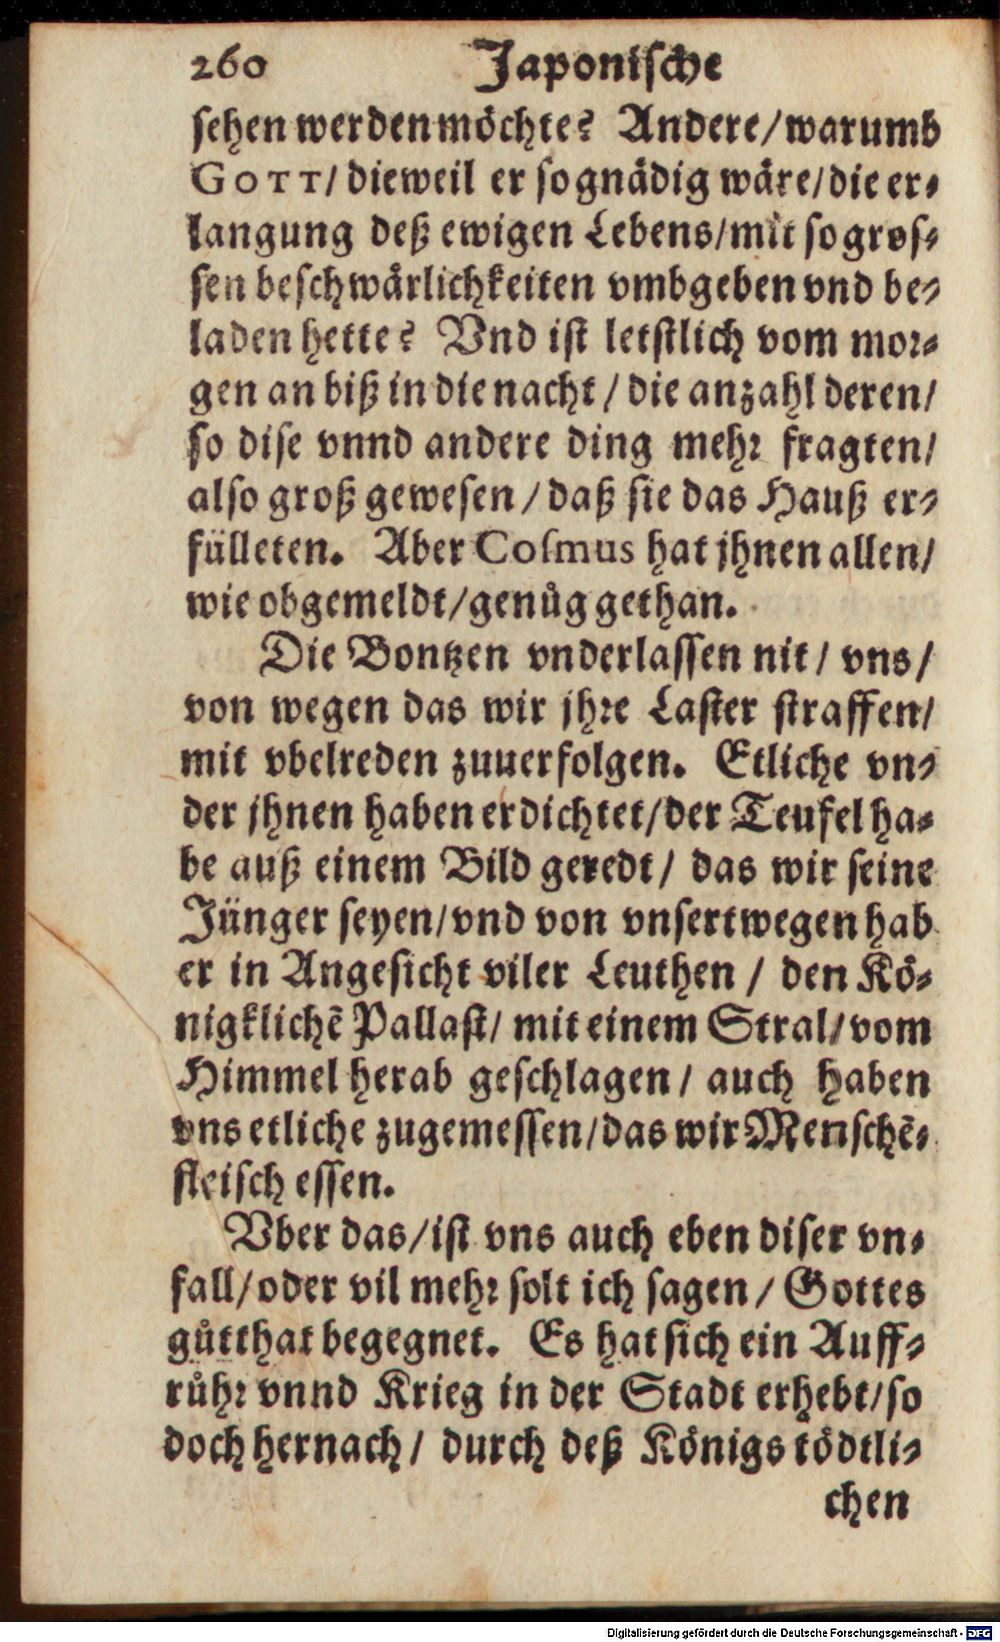 260 Japonische
sehen werden möchte? Andere/warumb
GOTT/ dieweil er so gnädig wäre/die er-
langung deß ewigen Lebens/mit so gros-
sen beschwårlichkeiten vmbgeben vnd be-
laden hette? Vnd ist letstlich vom mor-
gen an biß in die nacht / die anzahl deren/
so dise vnnd andere ding mehr fragten/
also groß gewesen / daß sie das Hauß er-
fülleten. Aber Cosmus hat jhnen allen/
wie obgemeldt/genůg gethan.
Die Bontzen vnderlassen nit/ vns/
von wegen das wir jhre Laster straffen/
mit vbelreden zuuerfolgen. Etliche vn-
der jhnen haben erdichtet/der Teufel ha-
be auß einem Bild geredt/ das wir seine
Jünger seyen/vnd von vnsertwegen hab
er in Angesicht viler Leuthen / den Kö-
nigklichẽ Pallast/ mit einem Stral/vom
Himmel herab geschlagen / auch haben
vns etliche zugemessen/das wir Menschẽ-
fleisch essen.
Vber das/ist vns auch eben diser vn-
fall/oder vil mehr solt ich sagen / Gottes
gůtthat begegnet. Es hat sich ein Auff-
růhr vnnd Krieg in der Stadt erhebt/so
doch hernach/ durch deß Königs tödtli-
chen
Digitalisierung gefördert durch die Deutsche Forschungsgemeinschaft - DFG